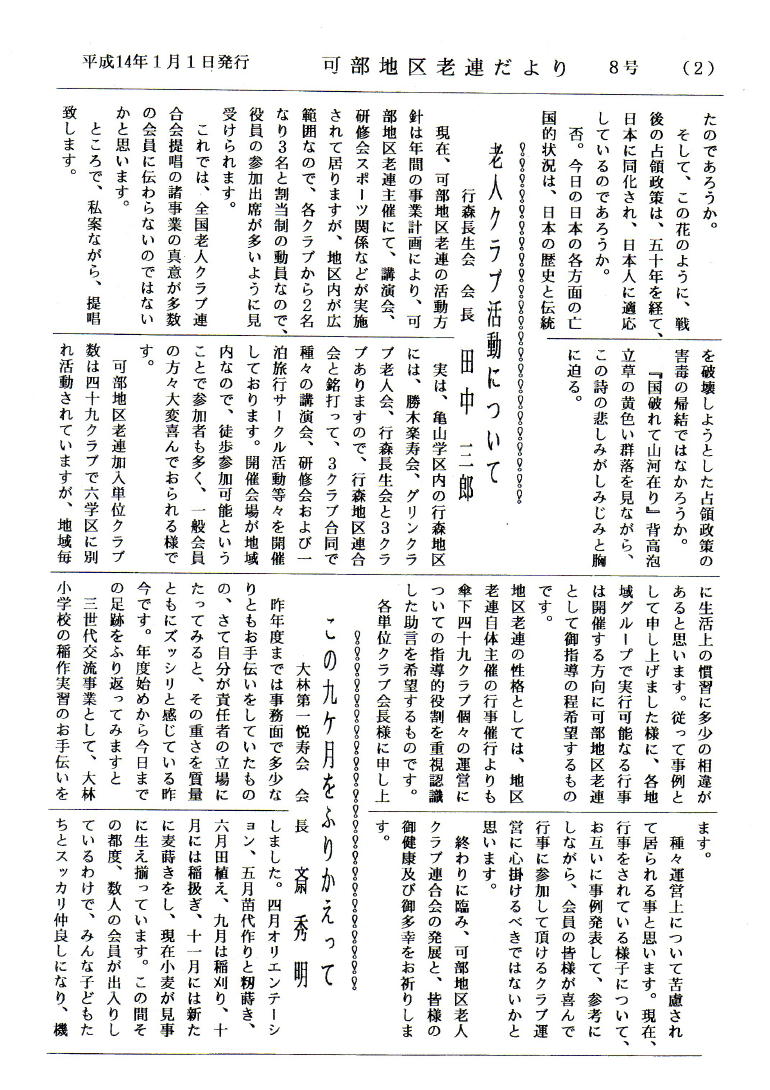 平成14年1月1日発行
可部地区老連だより
8号
（2）
たのであろうか。
そして、この花のように、戦
後の占領政策は、五十年を経て、
日本に同化され、日本人に適応
しているのであろうか。
否。今日の日本の各方面の亡
国的状況は、日本の歴史と伝統
を破壊しようとした占領政策の
害毒の帰結ではなかろうか。
『国破れて山河在り』背高泡
立草の黄色い群落を見ながら、
この詩の悲しみがしみじみと胸
に迫る。
老人クラブ活動について
行森長生会　会長　田中　一二郎
現在、可部地区老連の活動方
針は年間の事業計画により、可
部地区老連主催にて、講演会、
研修会スポーツ関係などが実施
されて居りますが、地区内が広
範囲なので、各クラブから2名
なり3名と割当制の動員なので、
役員の参加出席が多いように見
受けられます。
これでは、全国老人クラブ連
合会提唱の諸事業の真意が多数
の会員に伝わらないのではない
かと思います。
ところで、私案ながら、提唱
致します。
実は、亀山学区内の行森地区
には、勝木楽寿会、グリンクラ
ブ老人会、行森長生会と3クラ
ブありますので、行森地区連合
会と銘打って、3クラブ合同で
種々の講演会、研修会および一
泊旅行サークル活動等々を開催
しております。開催会場が地域
内なので、徒歩参加可能という
ことで参加者も多く、一般会員
の方々大変喜んでおられる様で
す。
可部地区老連加入単位クラブ
数は四十九クラブで六学区に別
れ活動されていますが、地域毎
に生活上の慣習に多少の相違が
あると思います。従って事例と
して申し上げました様に、各地
域グループで実行可能なる行事
は開催する方向に可部地区老連
として御指導の程希望するもの
です。
地区老連の性格としては、地区
老連自体主催の行事催行よりも
傘下四十九クラブ個々の運営に
ついての指導的役割を重視認識
した助言を希望するものです。
各単位クラブ会長様に申し上
ます。
種々運営上について苦慮され
て居られる事と思います。現在、
行事をされている様子について、
お互いに事例発表して、参考に
しながら、会員の皆様が喜んで
行事に参加して頂けるクラブ運
営に心掛けるべきではないかと
思います。
終わりに臨み、可部地区老人
クラブ連合会の発展と、皆様の
御健康及び御多幸をお祈りしま
す。
この九ケ月をふりかえって
大林第一悦寿会　会長　斎　秀明
昨年度までは事務面で多少な
りともお手伝いをしていたもの
の、さて自分が責任者の立場に
たってみると、その重さを質量
ともにズッシリと感じている昨
今です。年度始めから今日まで
の足跡をふり返ってみますと
三世代交流事業として、大林
小学校の稲作実習のお手伝いを
しました。四月オリエンテーシ
ョン、五月苗代作りと籾蒔き、
六月田植え、九月は稲刈り、十
月には稲扱ぎ、十一月には新た
に麦蒔きをし、現在小麦が見事
に生え揃っています。この間そ
の都度、数人の会員が出入りし
ているわけで、みんな子どもた
ちとスッカリ仲良しになり、機